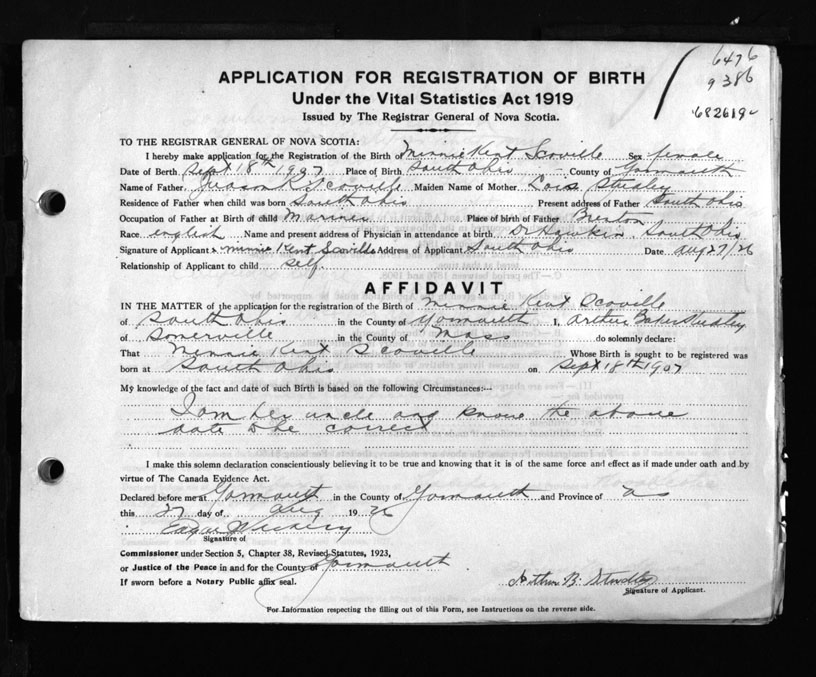 6476
9386
682619
APPLICATION FOR REGISTRATION OF BIRTH
Under the Vital Statistics Act 1919
Issued by The Registrar General of Nova Scotia.
TO THE REGISTRAR GENERAL OF NOVA SCOTIA:
I hereby make application for the Registration of the Birth of Minnie Kent Scoville Sex female
Date of Birth Sept 18th 1907 Place of Birth South Ohio County of Yarmouth
Name of Father K Scoville Maiden Name of Mother Lois
Residence of Father when child was born South Ohio Present address of Father South Ohio
Occupation of Father at Birth of child Mariner Place of birth of Father
Race english Name and present address of Physician in attendance at birth Dr Hawkins South Ohio
Signature of Applicant Minnie Kent Scoville Address of Applicant South Ohio Date Aug 27/26
Relationship of Applicant to child self.
AFFIDAVIT
IN THE MATTER of the application for the registration of the Birth of Minnie Kent Scoville
of South Ohio in the County of Yarmouth I, Arthur
of Somerville in the County of Mass do solemnly declare:
That Minnie Kent Scoville Whose Birth is sought to be registered was
born at South Ohio on Sept 18th 1907
My knowledge of the fact and date of such Birth is based on the following Circumstances:—
I am her uncle and know the above
date to be correct
I make this solemn declaration conscientiously believing it to be true and knowing that it is of the same force and effect as if made under oath and by
virtue of The Canada Evidence Act.
Declared before me at Yarmouth in the County of Yarmouth and Province of NS
this 27 day of Aug 1926
Edgar
Signature of
Commissioner under Section 5, Chapter 38, Revised Statutes, 1923,
or Justice of the Peace in and for the County of Yarmouth
If sworn before a Notary Public affix seal.
Arthur B. Studley
Signature of Applicant.
For Information respecting the filling out of this Form, see Instructions on the reverse side.